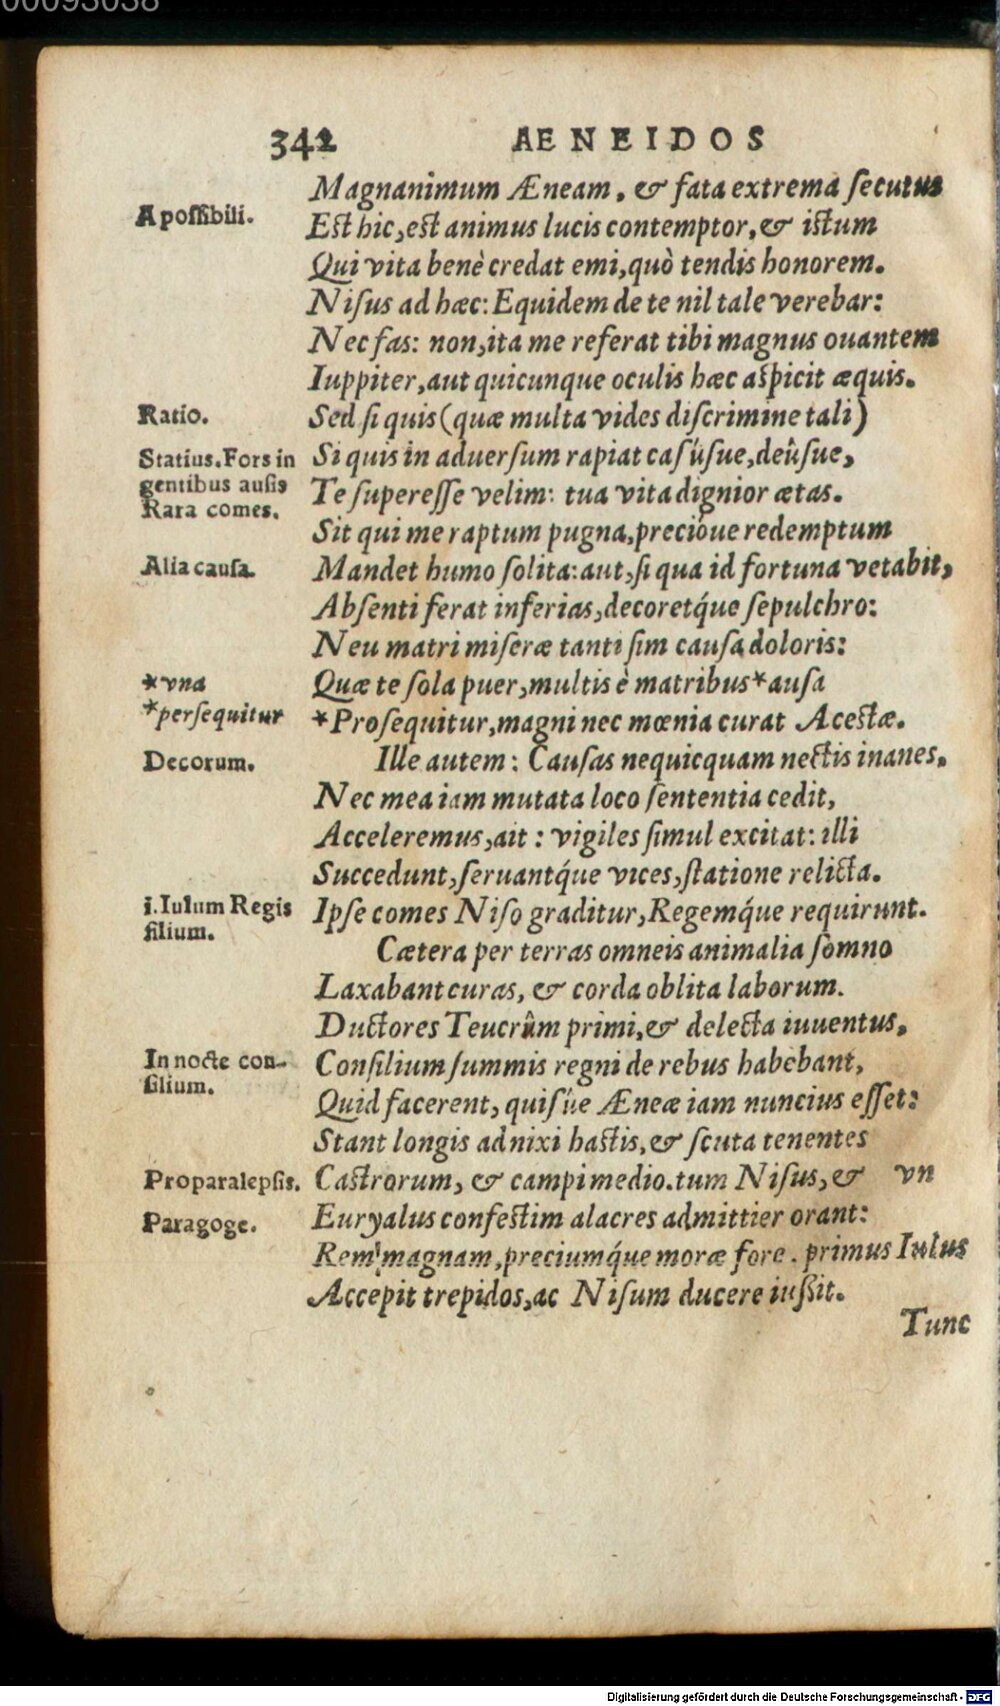 00093038
342 AENEIDOS
Magnanimum Æneam, & fata extrema ſecutus
A poſſibili.
Est hic, est animus lucis contemptor, & istum
Qui vita benè credat emi, quò tendis honorem.
Niſus ad hæc: Equidem de te nil tale verebar:
Nec fas: non, ita me referat tibi magnus ouantem
Iuppiter, aut quicunque oculis hæc aspicit æquis.
Ratio.
Sed ſi quis (quæ multa vides diſcrimine tali)
Statius. Fors in
gentibus auſis
Rara comes.
Si quis in aduerſum rapiat caſúſue, deûſue,
Te ſupereſſe velim: tua vita dignior ætas.
Sit qui me raptum pugna, precióue redemptum
Alia cauſa.
Mandet humo ſolita: aut, ſi qua id fortuna vetabit,
Abſenti ferat inferias, decoretq́ue ſepulchro:
Neu matri miſeræ tanti ſim cauſa doloris:
*vna
Quæ te ſola puer, multis è matribus *auſa
*perſequitur
*Proſequitur, magni nec mœnia curat Acestæ.
Decorum.
Ille autem: Cauſas nequicquam nectis inanes,
Nec mea iam mutata loco ſententia cedit,
Acceleremus, ait: vigiles ſimul excitat: illi
Succedunt, ſeruantq́ue vices, ſtatione relicta.
i. Iulum Regis
filium.
Ipſe comes Niſo graditur, Regemq́ue requirunt.
Cætera per terras omneis animalia ſomno
Laxabant curas, & corda oblita laborum.
Ductores Teucrûm primi, & delecta iuuentus,
In nocte con-
ſilium.
Conſilium ſummis regni de rebus habebant,
Quid facerent, quiſúe Æneæ iam nuncius eſſet:
Stant longis adnixi hastis, & ſcuta tenentes
Proparalepſis.
Castrorum, & campi medio. tum Niſus, & vn
Paragoge.
Euryalus confestim alacres admittier orant:
Rem magnam, preciumq́ue moræ fore. primus Iulus
Accepit trepidos, ac Niſum ducere iuſsit.
Tunc
Digitalisierung gefördert durch die Deutsche Forschungsgemeinschaft - DFG